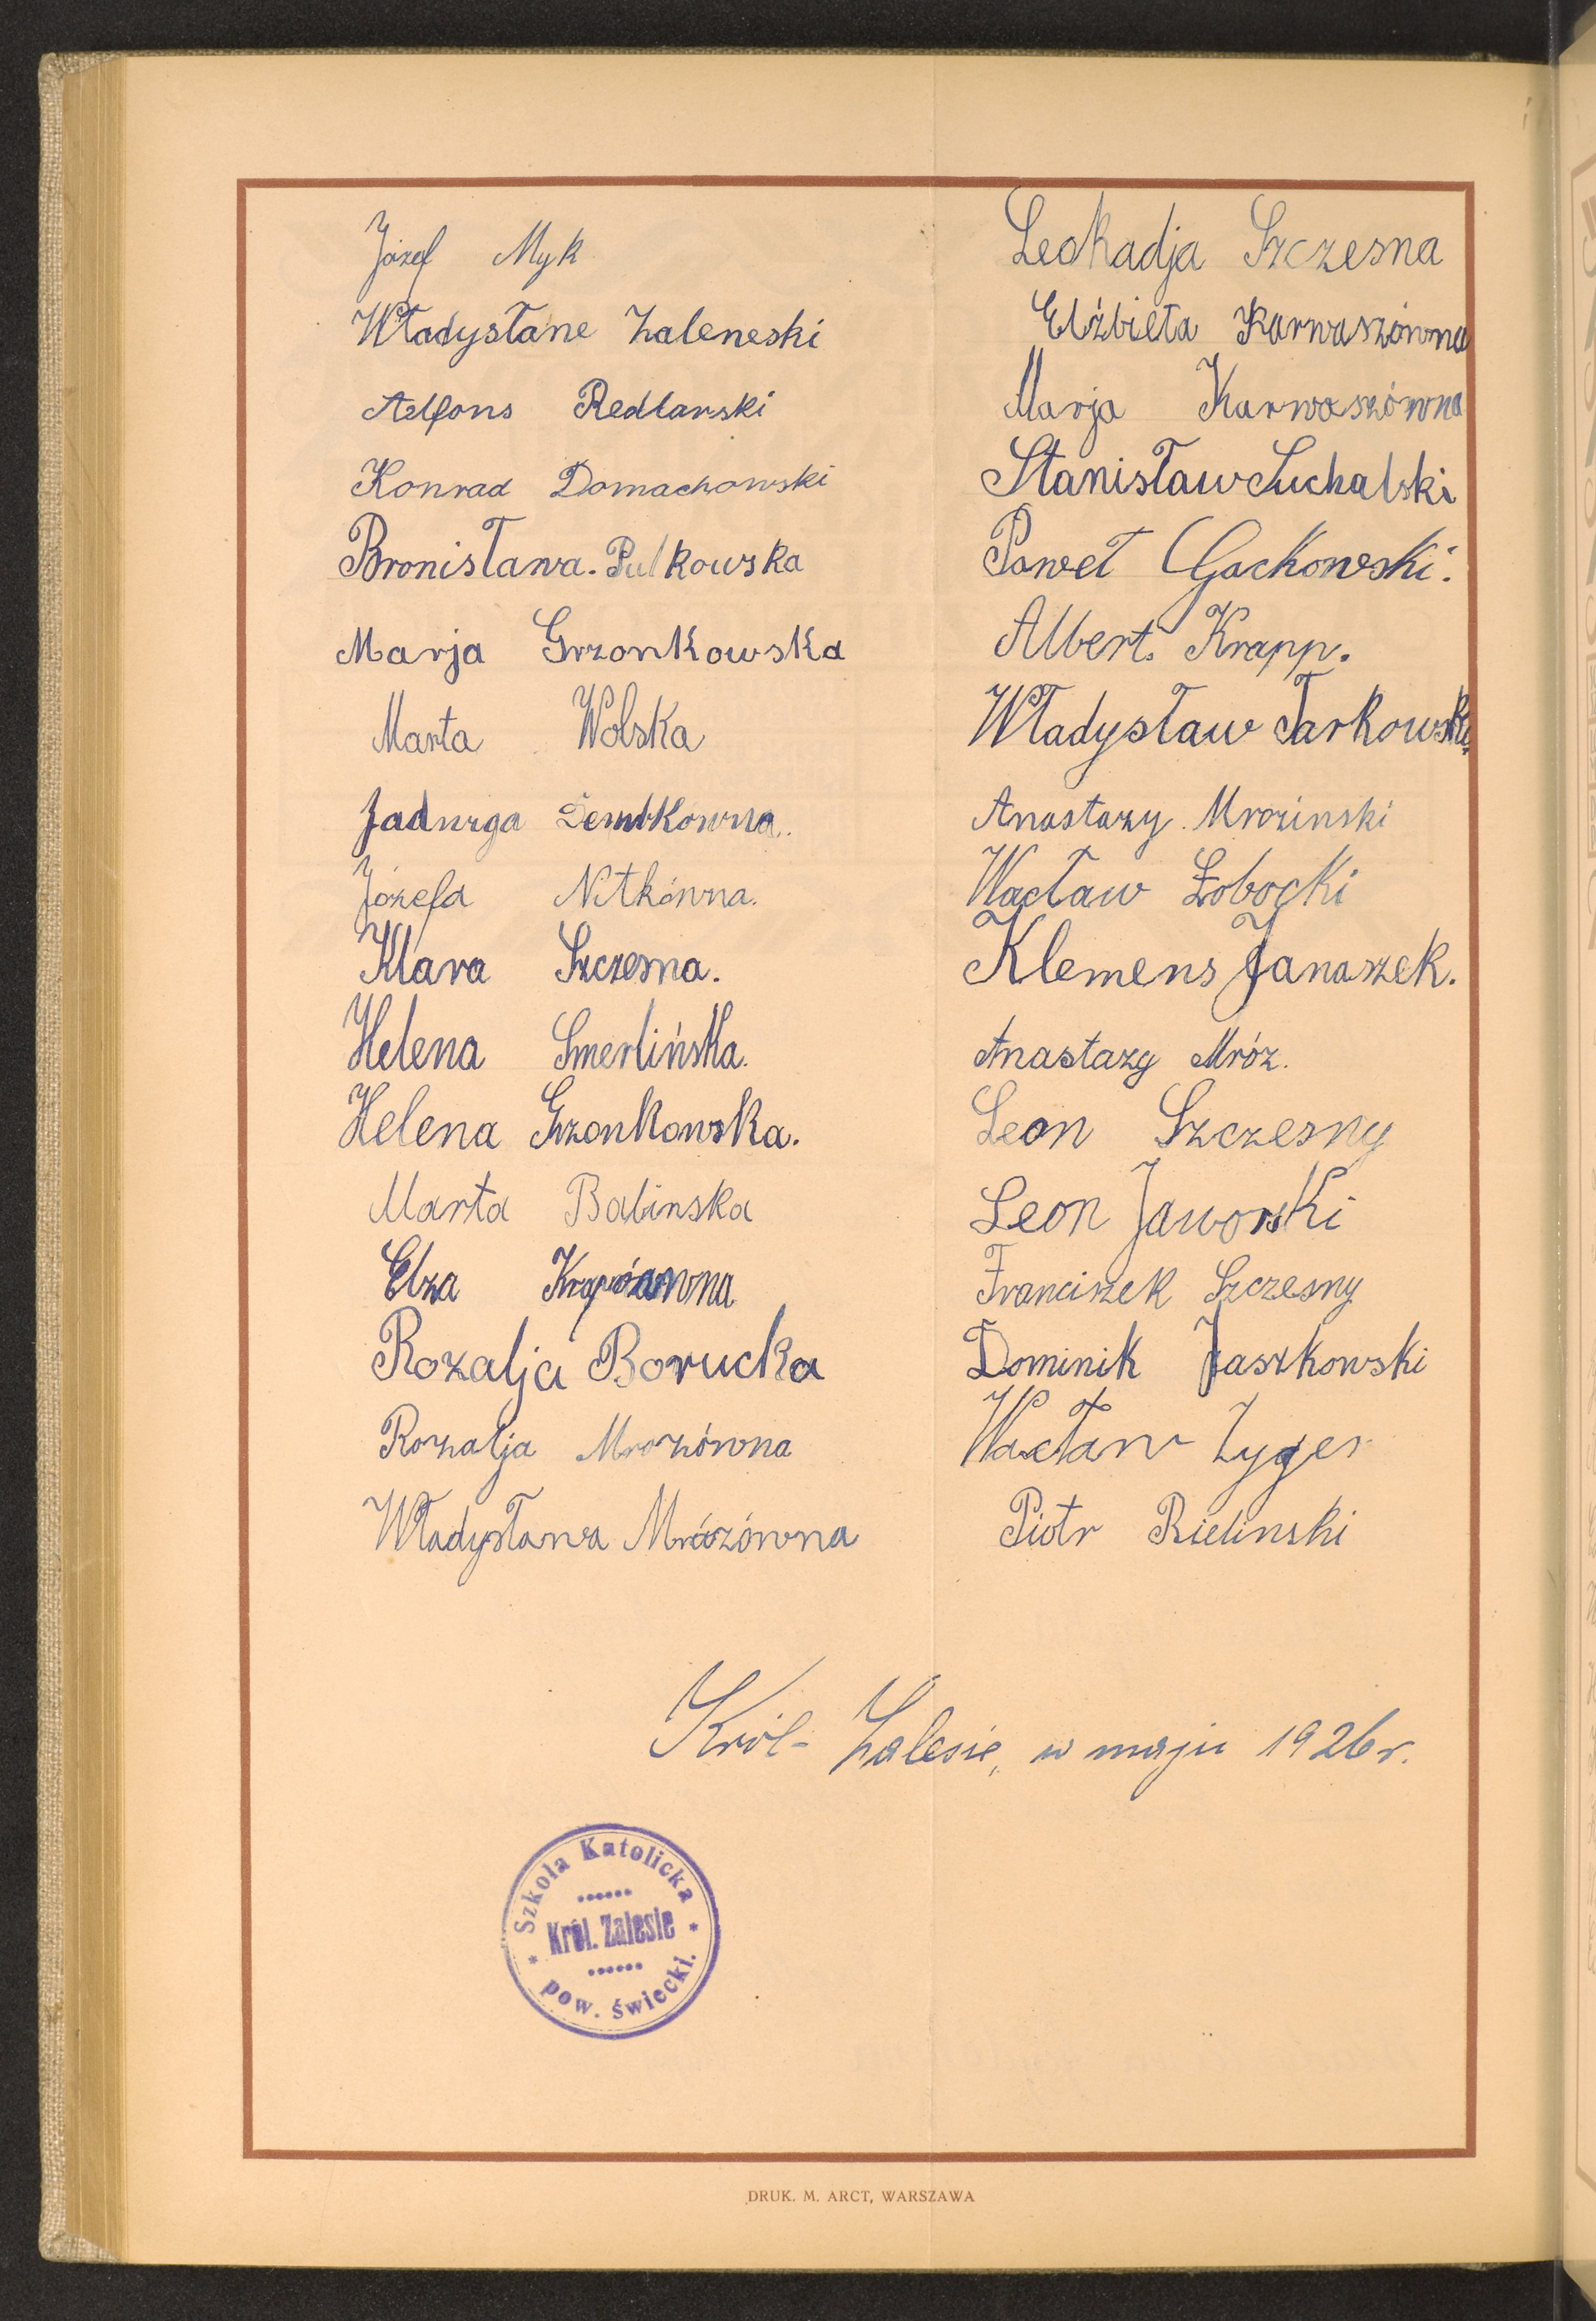 Józef Myk
Władysław Zaleneski
Alfons Redlarski
Konrad Domachowski
Bronisława. Pulkowska
Marja Grzonkowska
Marta Wolska
Jadwiga Dembkowna.
Józefa Nitkówna.
Klara Szczesna.
Helena Smerlińska.
Helena Grzonkowska.
Marta Balinska
Elza
Rozalja Borucka
Rozalja Mrozówna
Władysława Mrózówna
Leokadja Szczesna
Elżbieta Karwaszówna
Marja Karwaszówna
Stanisław Suchalski
Paweł Gackowski.
Albert Krapp.
Władysław Jarkowski
Anastazy Mrozinski
Wacław Łobocki
Klemens Janaszek.
Anastazy Mróz.
Leon Szczesny
Leon Jaworski
Franciszek Szczesny
Dominik Jaszkowski
Wacław Zyger
Piotr Bielinski
Król-Zalesie, w maju 1926 r.
Szkoła Katolicka
Król. Zalesie
pow. świecki.
DRUK. M. ARCT, WARSZAWA